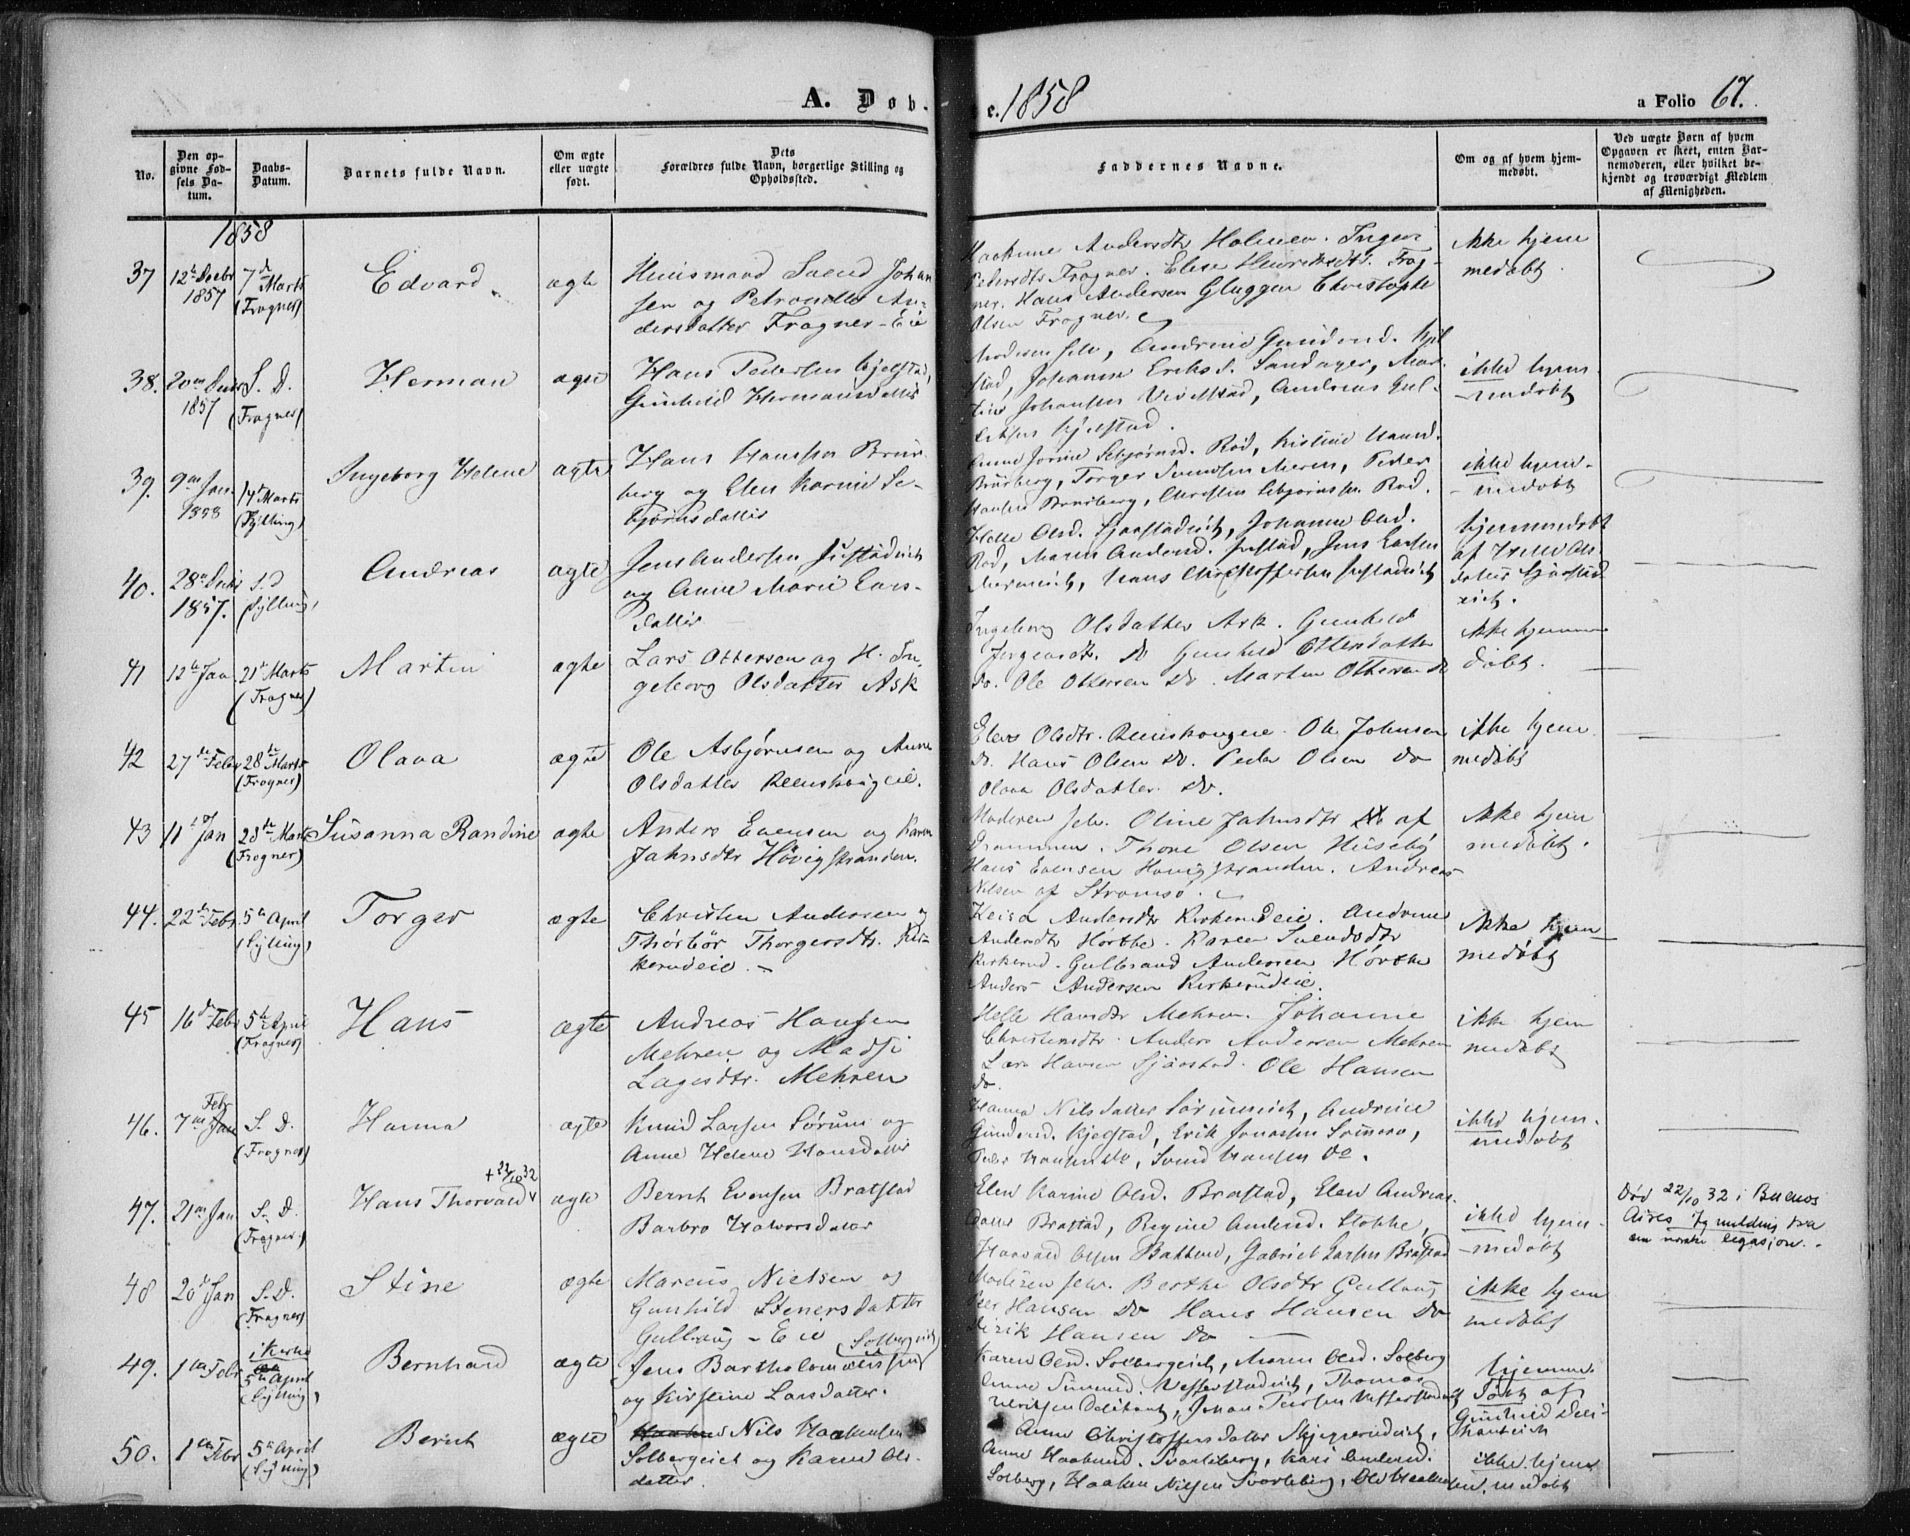 A. Døb.
e. 1858
a Folio 67.
No.
Den opgivne Fødsels Datum.
Daabs-Datum.
Barnets fulde Navn.
Om ægte eller uægte født.
Dets Forældres fulde Navn, borgerlige Stilling og Opholdssted.
Faddernes Navne.
Om og af hvem hjemmedøbt.
Ved uægte Børn af hvem Opgaven er skeet, enten Barnemoderen, eller hvilket bekjendt og troværdigt Medlem af Menigheden.
1858
37
12te Decbr 1857
7de Marts (Frogner)
Edvard
ægte
Huusmand Svend Johan
sen og Petronelle An-
dersdatter Frogner-Eie
Haakine Andersdtr Holmen. Inger
Pedersdtr Frogner. Elise Henriksdtr. Frog-
ner. Hans Andersen Gluggen Christophe
Olsen Frogner.
Ikke hjem
medøbt.
38.
20de Decbr 1857
S. D. (Frogner)
Herman
ægte
Hans Pedersen Kjelstad,
Gunhild Hermansdatter
Moderen selv, Andrine Gundersd. Kjel
stad, Johanne Eriksd. Sandager, Mar-
Johansen Vivelstad, Andreas Gul-
Kjelstad.
ikke hjem-
medøbt
39.
9de Jan. 1858
14de Marts (Sylling)
Ingeborg Helene
ægte
Hans Hansen Bruur
berg og Elen Karine Se-
bjørnsdatter
Anne Jorine Sebjørnsd. Rød, Kristine Hansd.
Bruurberg, Torger Svendsen Meren, Peder
Hansen Bruurberg, Christen Sebjørnsen Rød.
ikke hjem-
medøbt
40.
28de Decbr 1857.
S. D (Sylling)
Andreas
ægte
Jens Andersen Justadeie
og Anne Marie Lars-
datter
Helle Olsd. Sjaastadeie, Johanne Olsd.
Rød, Maren Andersd. Justad, Jens Larsen
Mereneie, Hans Christoffersen Justadeie
hjemmedøbt
af Helle Ols-
datter Sjaastad
eie.
41
12te Jan
21de Marts (Frogner)
Martin
ægte
Lars Ottersen og H. In-
geborg Olsdatter Ask
Ingeborg Olsdatter Ask. Gunhild
Jørgensdtr. do Gunhild Ottersdatter
do. Ole Ottersen do. Martin Ottersen do
Ikke hjemme
døbt.
42
27de Febr
28de Marts (Frogner)
Olava
ægte
Ole Asbjørnsen og Anne
Olsdatter Reenskougeie.
Elen Olsdtr. Reenskougeie. Ole Johnsen
do. Hans Olsen do. Peder Olsen do
Olava Olsdatter do.
ikke hjem
medøbt
43
11te Jan
28de Marts (Frogner)
Susanna Randine
ægte
Anders Evensen og Karen
Jahnsdtr Høvigstranden.
Moderen selv. Oline Jahnsdtr af
Drammen. Thore Olsen Huseby
Hans Evensen Høvigstranden. Andreas
Nilsen af Strømsø.
Ikke hjem
medøbt.
44.
22de Febr
5te April (Sylling)
Torger
ægte
Christen Andersen og
Thorbør Thorgersdtr. Kir-
kerudeie.
Keisa Andersdtr Kirkerudeie. Andrine
Andersdtr Hørthe. Karen Svendsdtr
Kirkerud. Gulbrand Andersen Hørthe
Anders Andersen Kirkerudeie.
Ikke hjem
medøbt
45
16de Febr
5te April (Frogner)
Hans
ægte
Andreas Hansen
Mehren og Madsi
Lagesdtr. Mehren
Helle Hansdtr Mehren. Johanne
Christensdtr. Anders Andersen Mehren
Lars Hansen Sjaastad. Ole Hansen
do.
ikke hjem
medøbt
46.
7de Febr Jan
S. D. (Frogner)
Hanna
ægte
Knud Larsen Sørum og
Anne Helene Hansdatter
Hanna Nilsdatter Sørumeie, Andrine
Gundersd. Kjelstad, Erik Jonassen
Peder Hansen do, Svend Hansen do.
ikke hjem-
medøbt
47.
21de Jan
S. D. (Frogner)
Hans Thorvald
+ 22/10 32
ægte
Bernt Evensen Bratstad
Barbro Halvorsdatter
Elen Karine Olsd. Brastad, Elen Andreas
datter Brastad, Regine Andersd. Stokke,
Haavald Olsen Bakkerud, Gabriel Larsen Brastad
ikke hjem-
medøbt
Død 22/10 32 i Buenos
Aires. Ifg melding fra
den norske legasjon.
48
20de Jan
S. D. (Frogner)
Stine
ægte
Marcus Nielsen og
Gunhild Stenersdatter
Gullaug-Eie
Moderen selv. Berthe Olsdtr Gullaug
Peer Hansen do Hans Hansen do
Dirik Hansen do
ikke hjem
medøbt
49.
1ste Febr
i Kirke 5te April (Sylling)
Bernhard
ægte
Jens Bartholomæussen (Solbergeie)
og Kirstine Larsdatter.
Karen Olsd. Solbergeie, Maren Olsd. Solberg
Anne Simensd. Vefferstadeie, Thomas
Ulriksen Delihant, Johan Peersen Vefferstadeie
hjemme
døbt af
Gunhild Deli-
hanteie
50.
1ste Febr
5te April (Sylling)
Bernt
ægte
Nils Haakensen
Solbergeiet og Karen Ols-
datter.
Anne Christoffersdatter Skjeggerudeie,
Anne Haakensd. Svarteberg, Kari Andersd.
Solberg, Haaken Nilsen Svarteberg, Ole Haaken
sen.
ikke hjem
medøbt